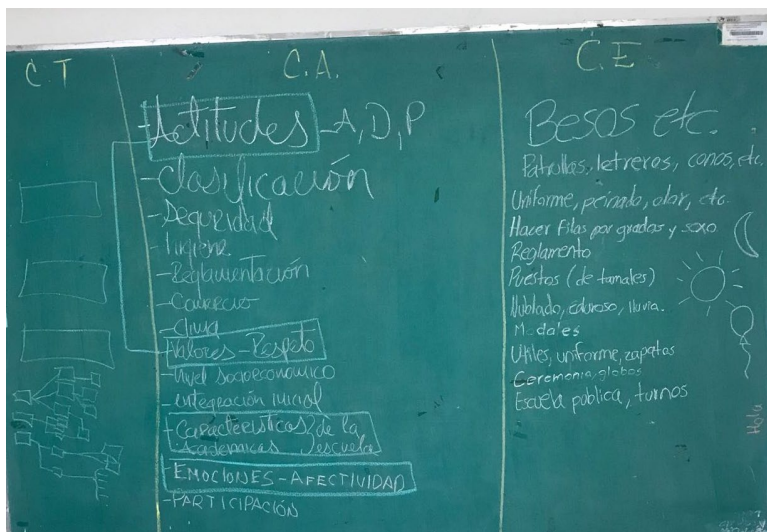 C T
C.A.
-Actitudes - A, D, P
-Clasificación
-Seguridad
-Higiene
-Reglamentación
-Comercio
-Clima
-Valores-Respeto
-Nivel socioeconómico
-integración inicial
-Características de la
Académicas escuela
-EMOCIONES-AFECTIVIDAD
-PARTICIPACIÓN
C.E
Besos etc.
Patrullas, letreros, conos, etc.
Uniforme, peinado, olor, etc.
Hacer filas por grados y sexo
Reglamento
Puestos (de tamales)
Nublado, caluroso, lluvia.
Modales
Utiles, uniforme, zapatos
Ceremonia, globos
Escuela pública, turnos
Hola